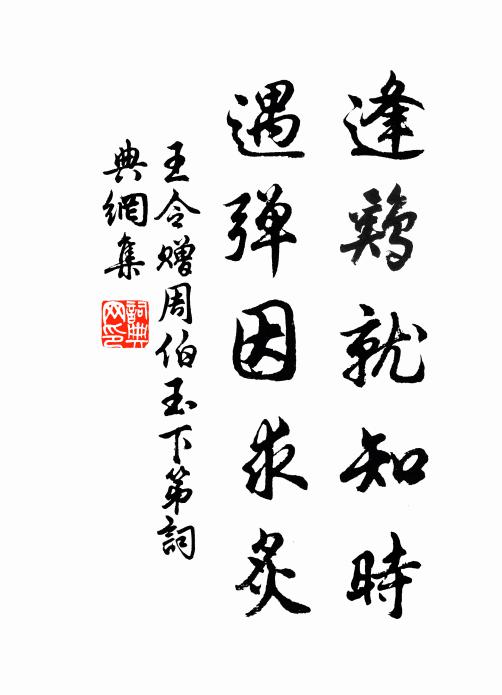 逢鷄就知時
遇彈因求炙
王令贈周伯玉下第詞
典網集
詞典網印